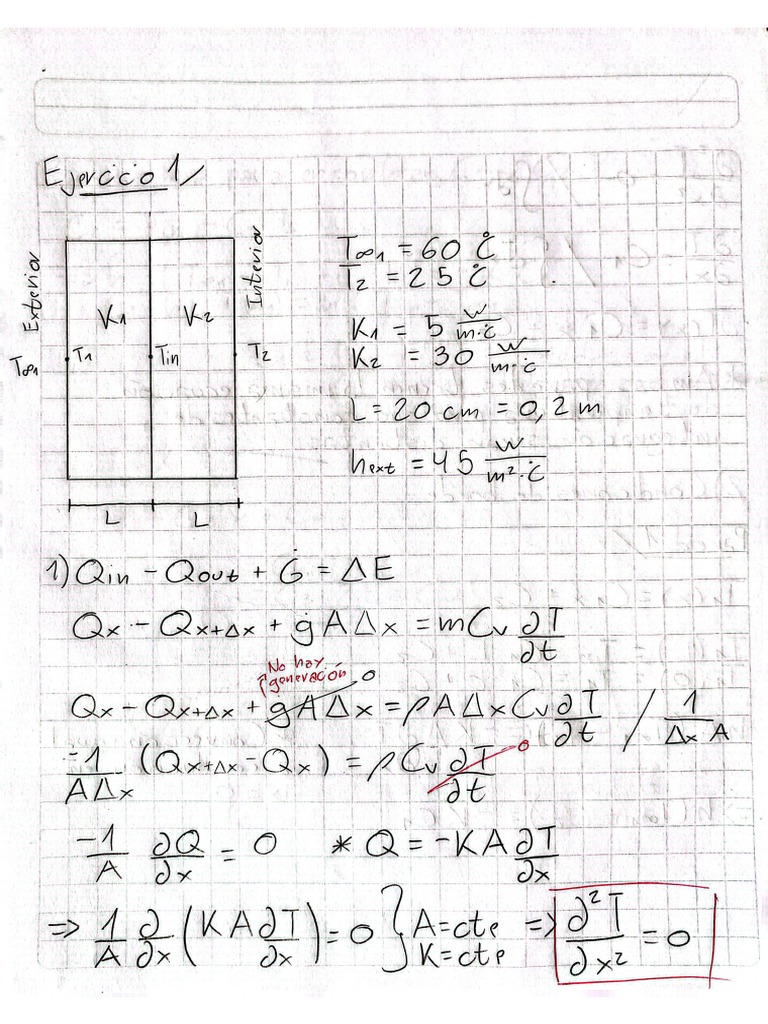 Ejercicio 1/
Exterior
Interior
K1 K2
T∞1 T1 Tin T2
L L
T∞1 = 60 °C
T2 = 25 °C
K1 = 5 W/m·°C
K2 = 30 W/m·°C
L = 20 cm = 0,2 m
hext = 45 W/m²·°C
1) Qin - Qout + Ġ = ΔE
Qx - Qx+Δx + ġAΔx = mCv ∂T/∂t
No hay
generación 0
Qx - Qx+Δx + ġAΔx = ρAΔxCv ∂T/∂t / 1/Δx A
-1/AΔx (Qx+Δx - Qx) = ρCv ∂T/∂t 0
-1/A ∂Q/∂x = 0 * Q = -KA ∂T/∂x
⇒ 1/A ∂/∂x (KA ∂T/∂x) = 0 } A = cte K = cte ⇒ ∂²T/∂x² = 0